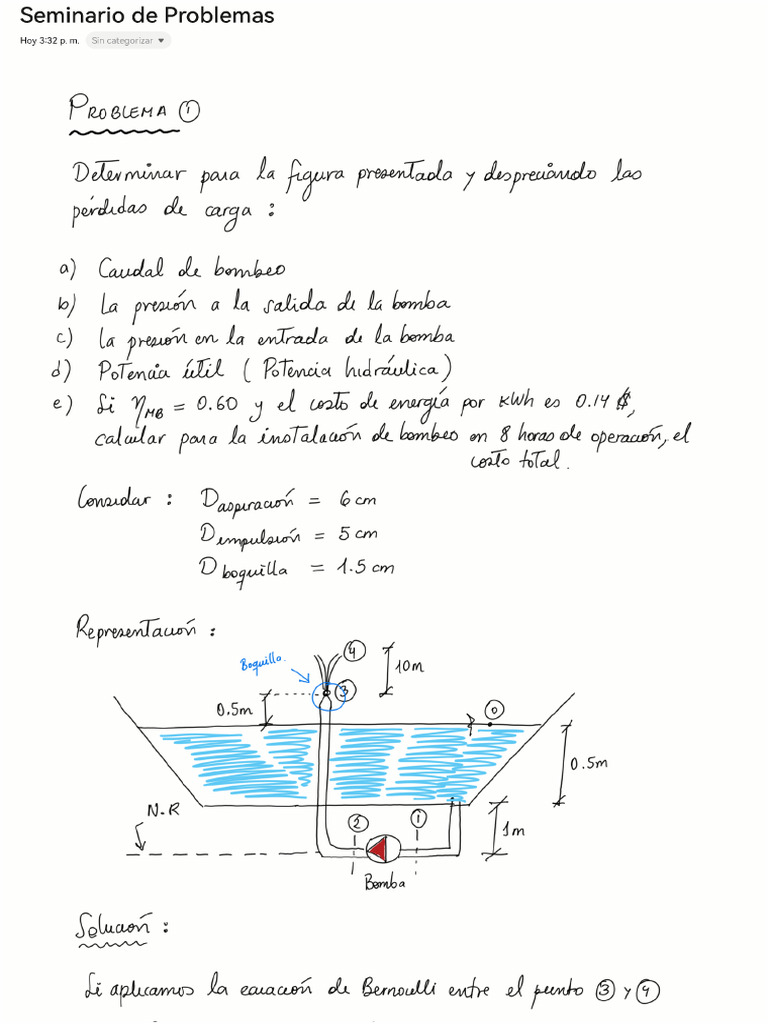 Seminario de Problemas
Hoy 3:32 p. m. Sin categorizar
PROBLEMA ①
Determinar para la figura presentada y despreciando las
pérdidas de carga :
a) Caudal de bombeo
b) La presión a la salida de la bomba
c) La presión en la entrada de la bomba
d) Potencia útil ( Potencia hidráulica )
e) Si ηMB = 0.60 y el costo de energía por kWh es 0.14 $,
calcular para la instalación de bombeo en 8 horas de operación, el
costo total.
Considar : Daspiración = 6 cm
Dimpulsión = 5 cm
Dboquilla = 1.5 cm
Representación :
Boquilla.
④
10m
③
0.5m
0
0.5m
N.R
② ①
1m
Bomba
Solución :
Si aplicamos la ecuación de Bernoulli entre el punto ③ y ④